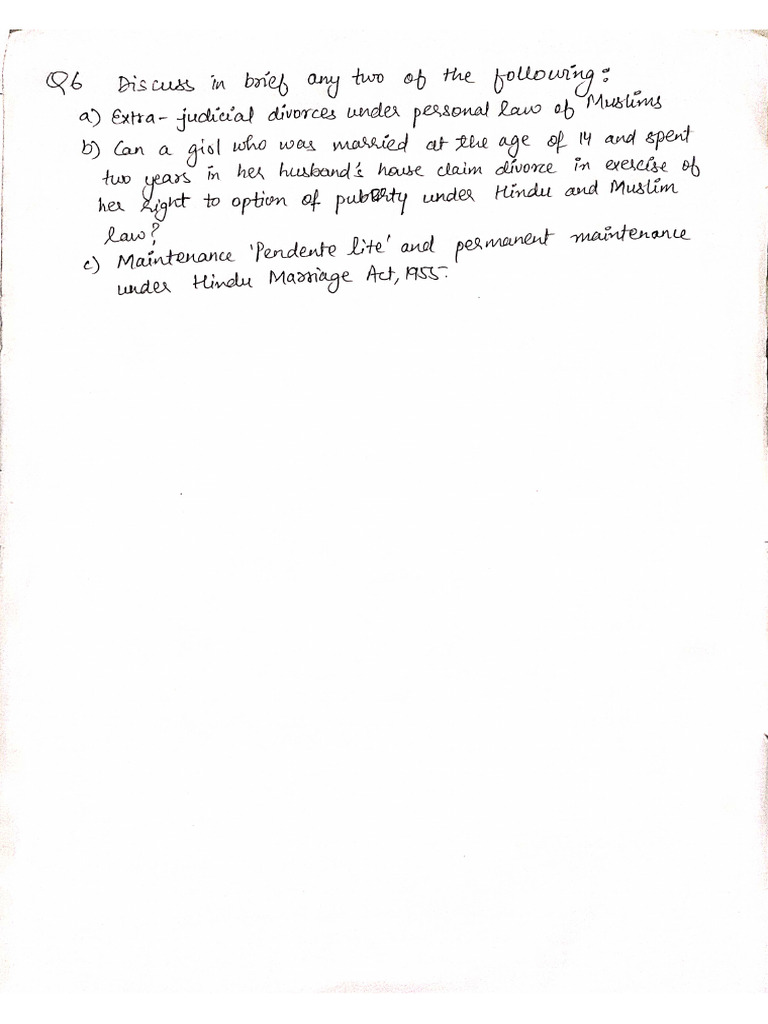 Q6 Discuss in brief any two of the following:
a) Extra-judicial divorces under personal law of Muslims
b) Can a girl who was married at the age of 14 and spent
two years in her husband's house claim divorce in exercise of
her right to option of puberty under Hindu and Muslim
law?
c) Maintenance 'Pendente lite' and permanent maintenance
under Hindu Marriage Act, 1955.